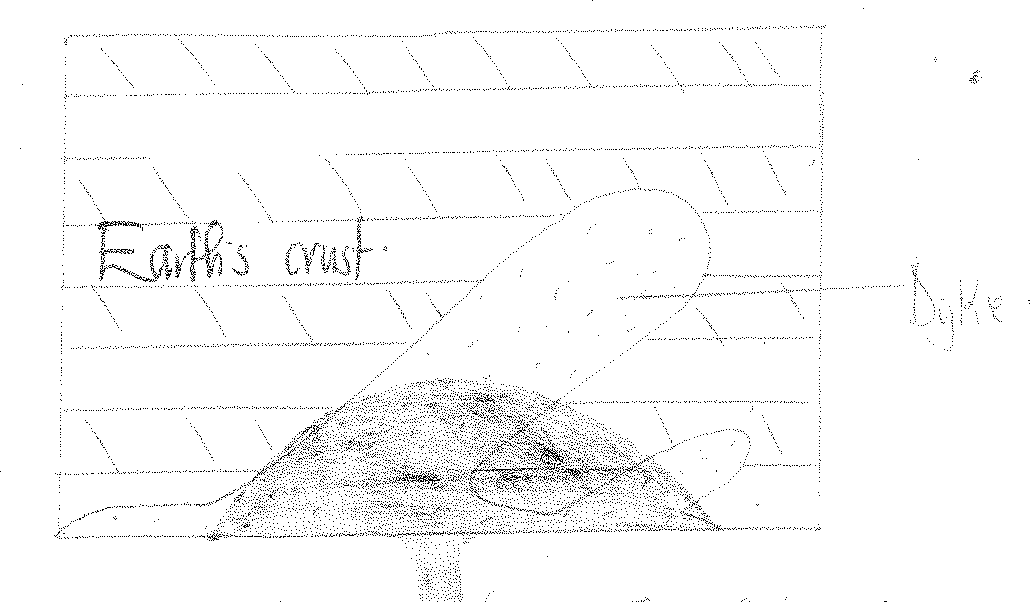 Earth's crust.
Dyke